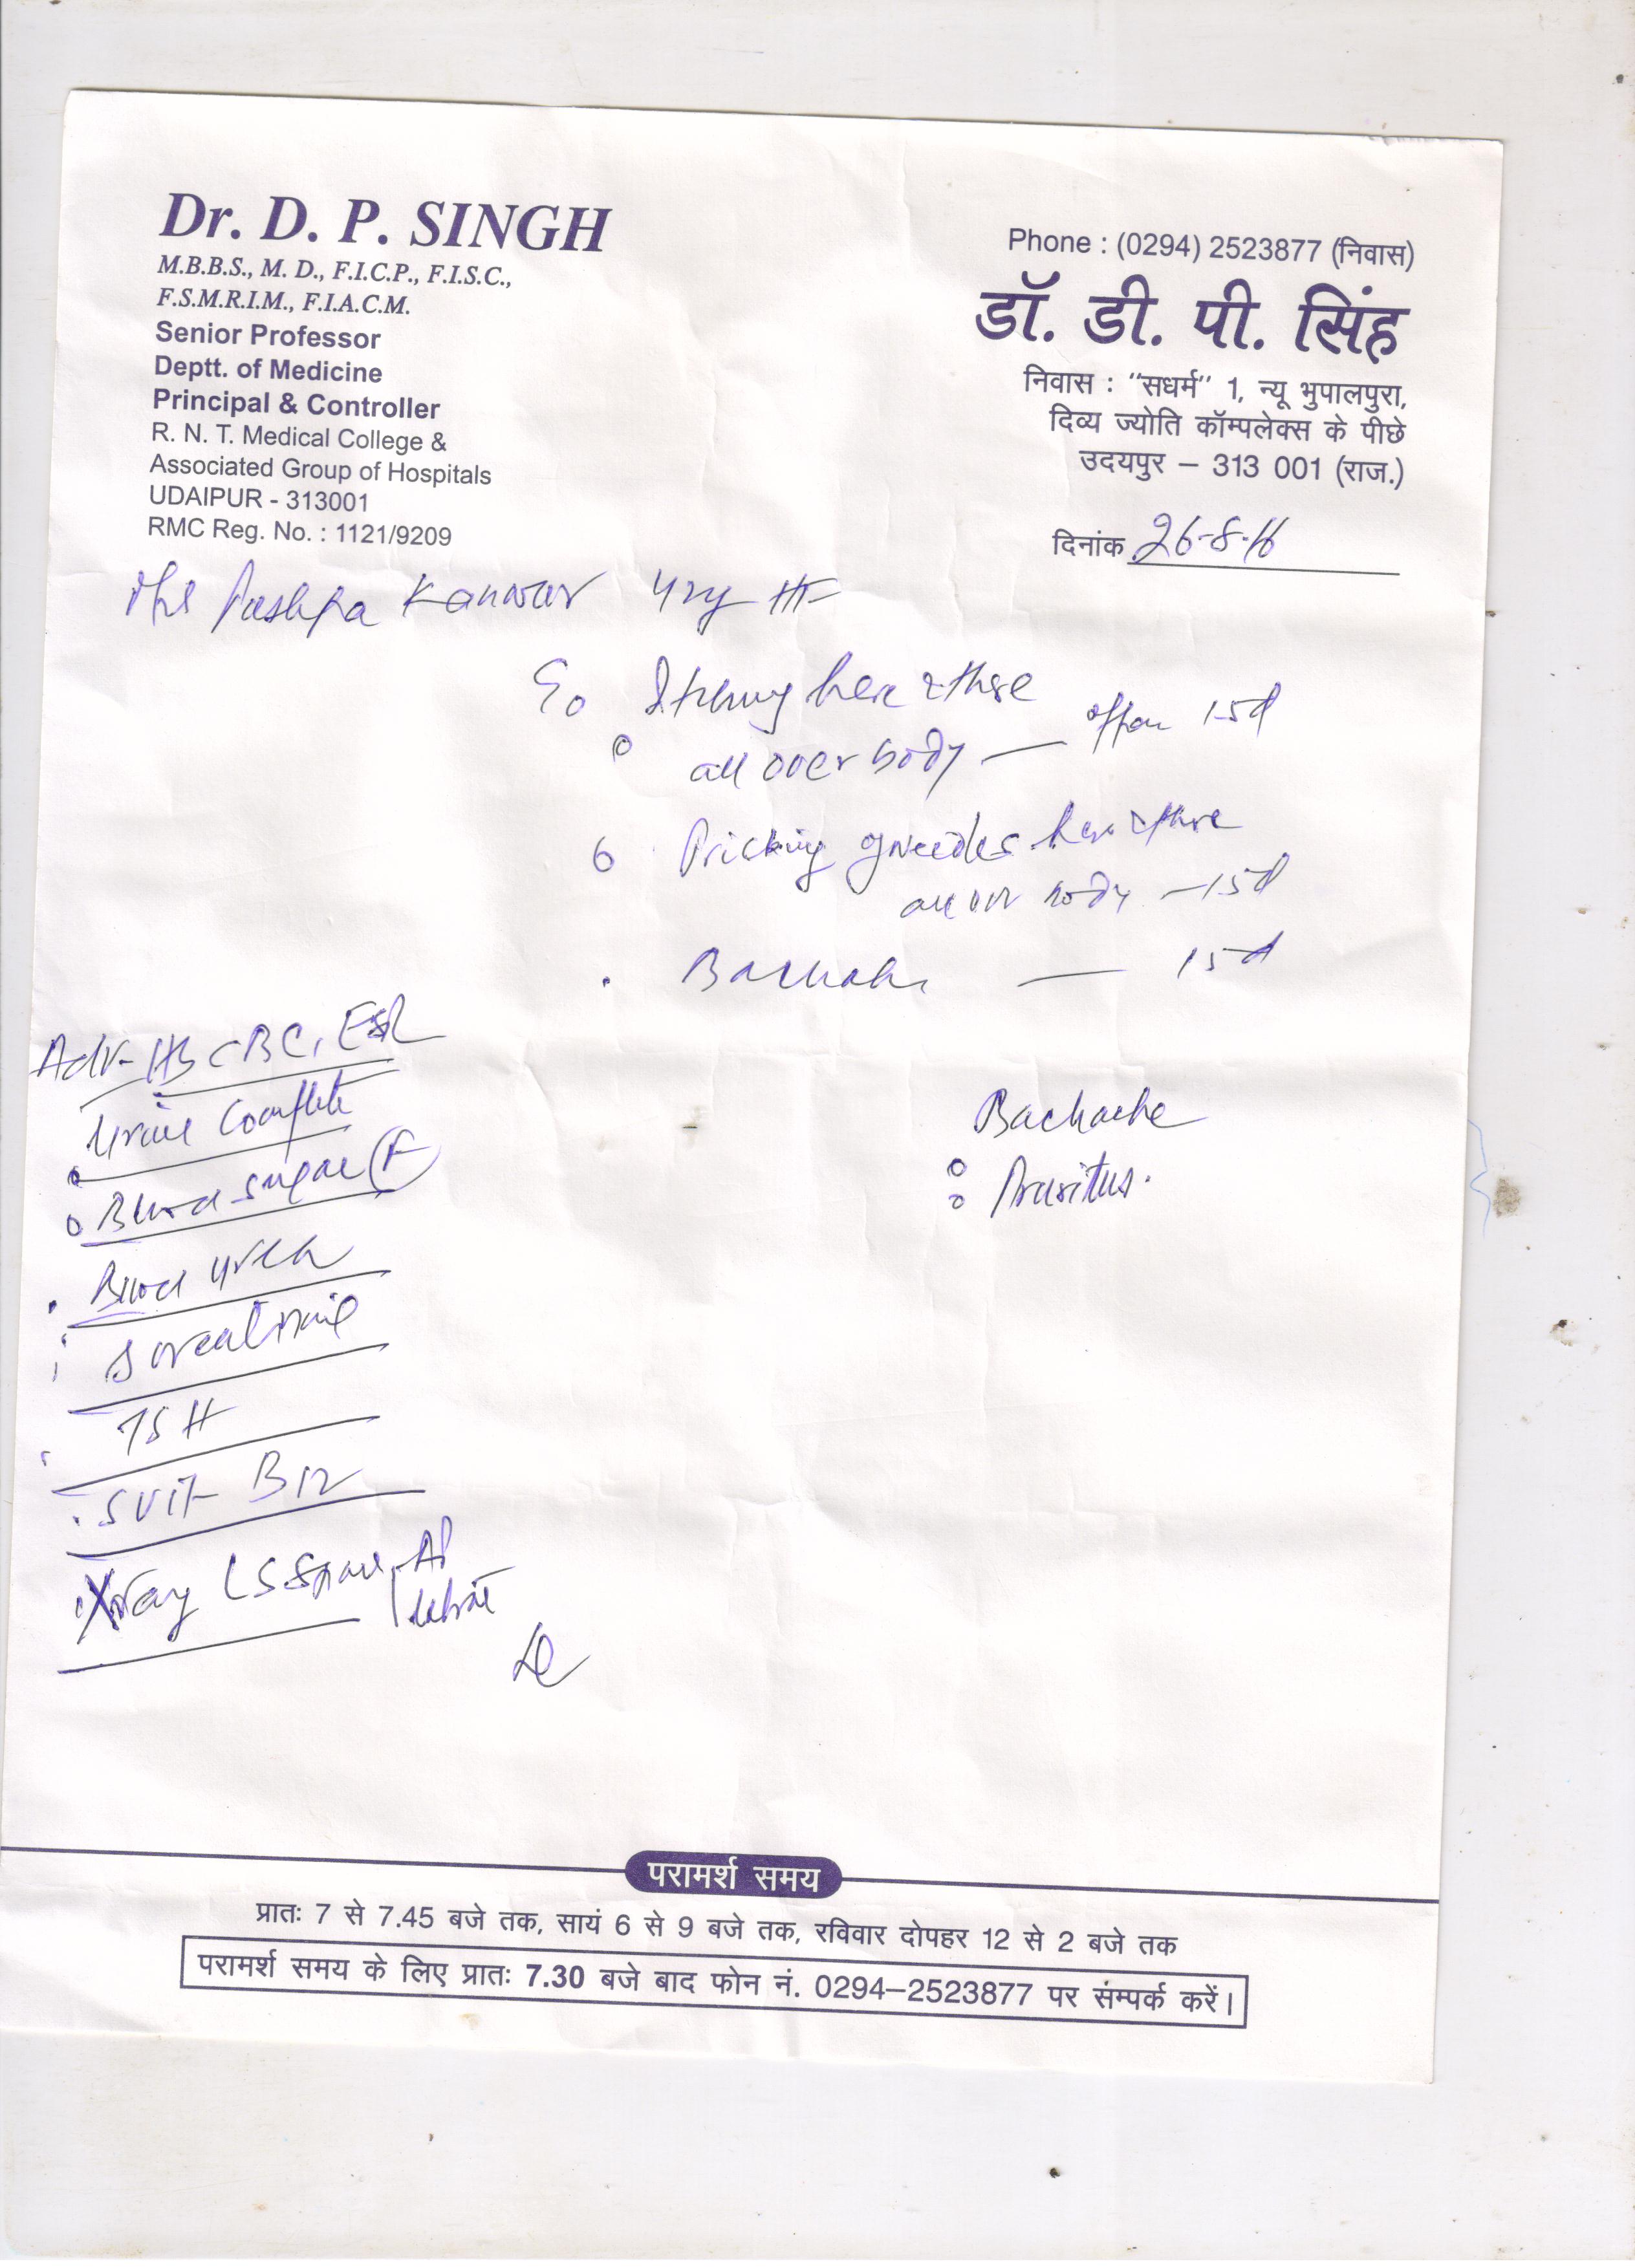 Dr. D. P. SINGH
M.B.B.S., M. D., F.I.C.P., F.I.S.C.,
F.S.M.R.I.M., F.I.A.C.M.
Senior Professor
Deptt. of Medicine
Principal & Controller
R. N. T. Medical College &
Associated Group of Hospitals
UDAIPUR - 313001
RMC Reg. No. : 1121/9209
Phone : (0294) 2523877 (निवास)
डॉ. डी. पी. सिंह
निवास : "सधर्म" 1, न्यू भुपालपुरा,
दिव्य ज्योति कॉम्पलेक्स के पीछे
उदयपुर – 313 001 (राज.)
दिनांक 26-8-16
Pushpa Kanwar
Itching here & there
all over body — 15d
Pricking needles here & there
all over body — 15d
Backache — 15d
Adv- Hb CBC, ESR
Urine Complete
Blood sugar (F)
Blood urea
S creatinine
TSH
S Vit B12
Xray LS Spine AP
Backache
Pruritus.
परामर्श समय
प्रातः 7 से 7.45 बजे तक, सायं 6 से 9 बजे तक, रविवार दोपहर 12 से 2 बजे तक
परामर्श समय के लिए प्रातः 7.30 बजे बाद फोन नं. 0294–2523877 पर संम्पर्क करें।